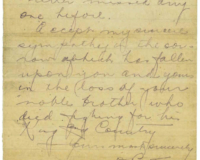 missed any
one before.
Accept my sincere
sympathy of the sor-
row which has fallen
upon you and yours
in the loss of your
noble brother who
died fighting for his
King & Country